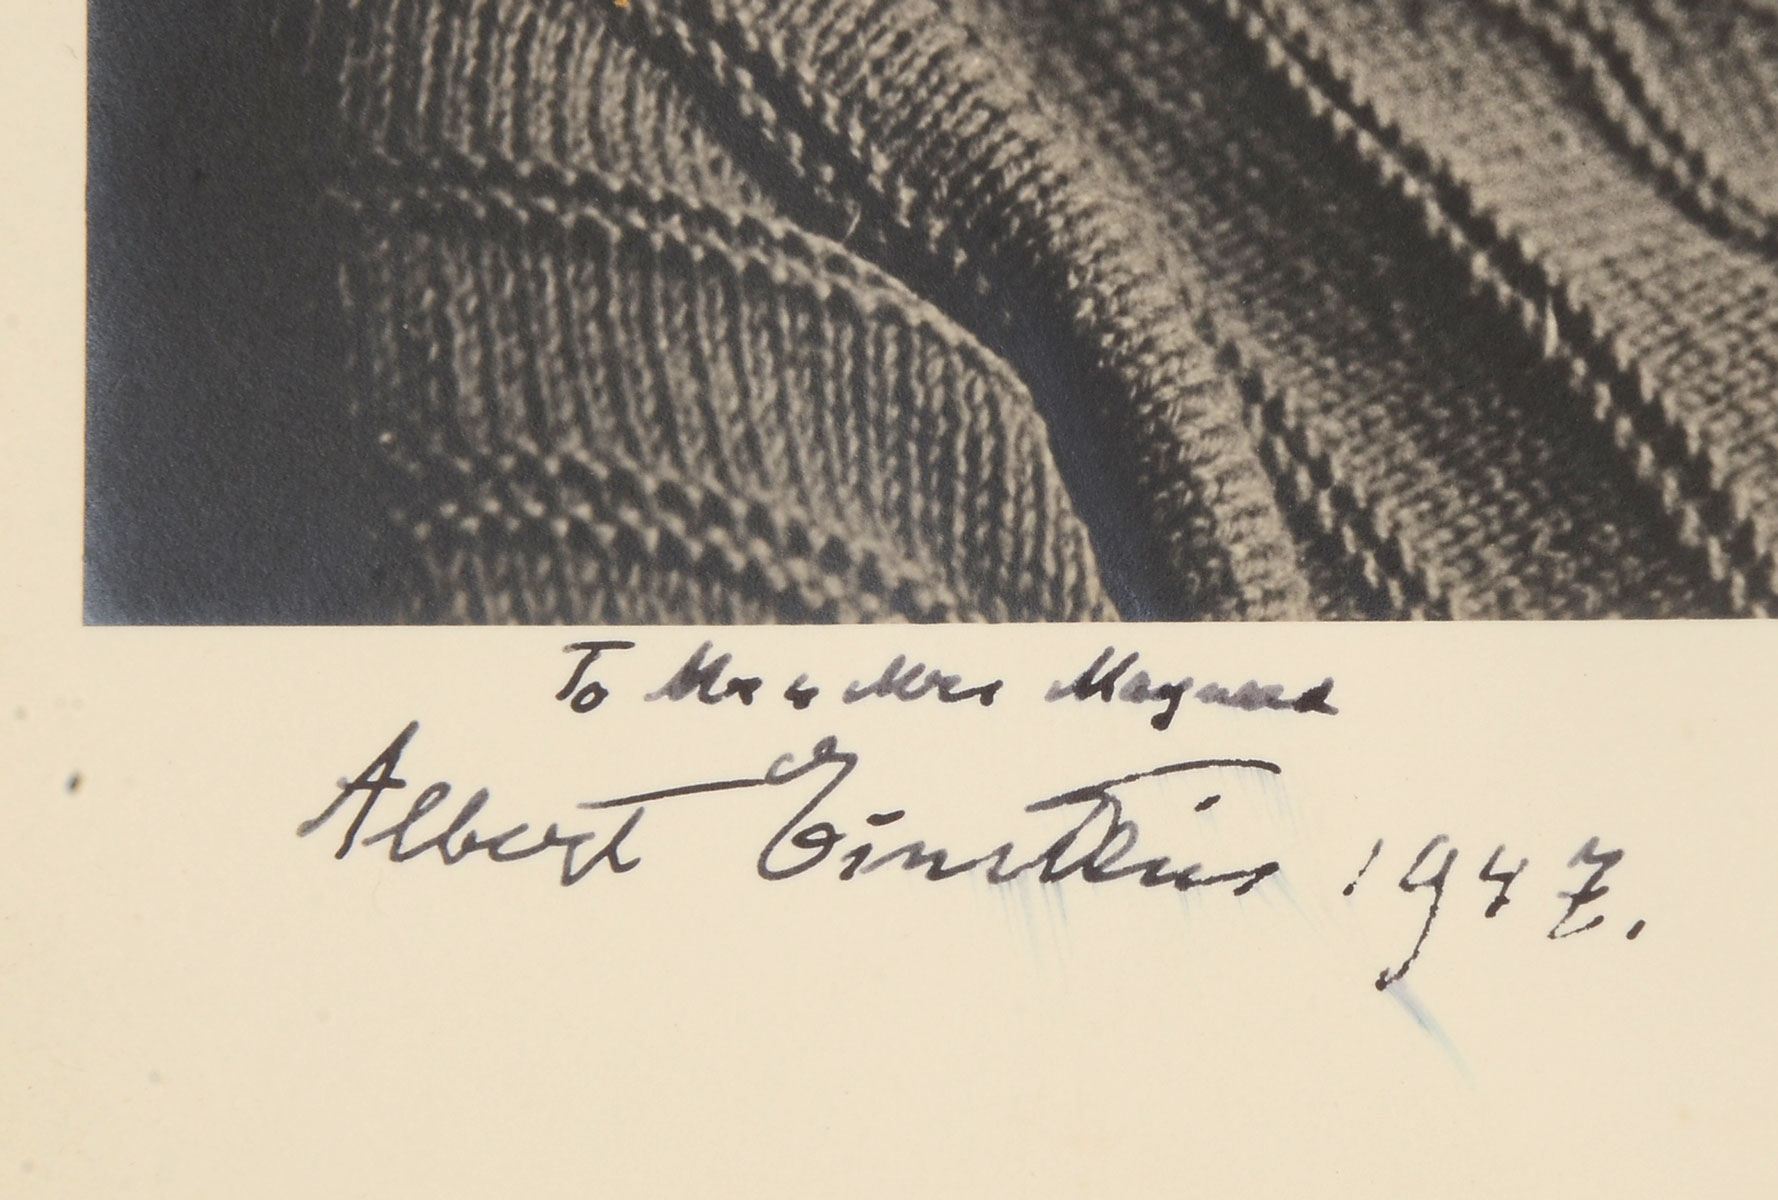 To Mr & Mrs Maynard
Albert Einstein 1947.